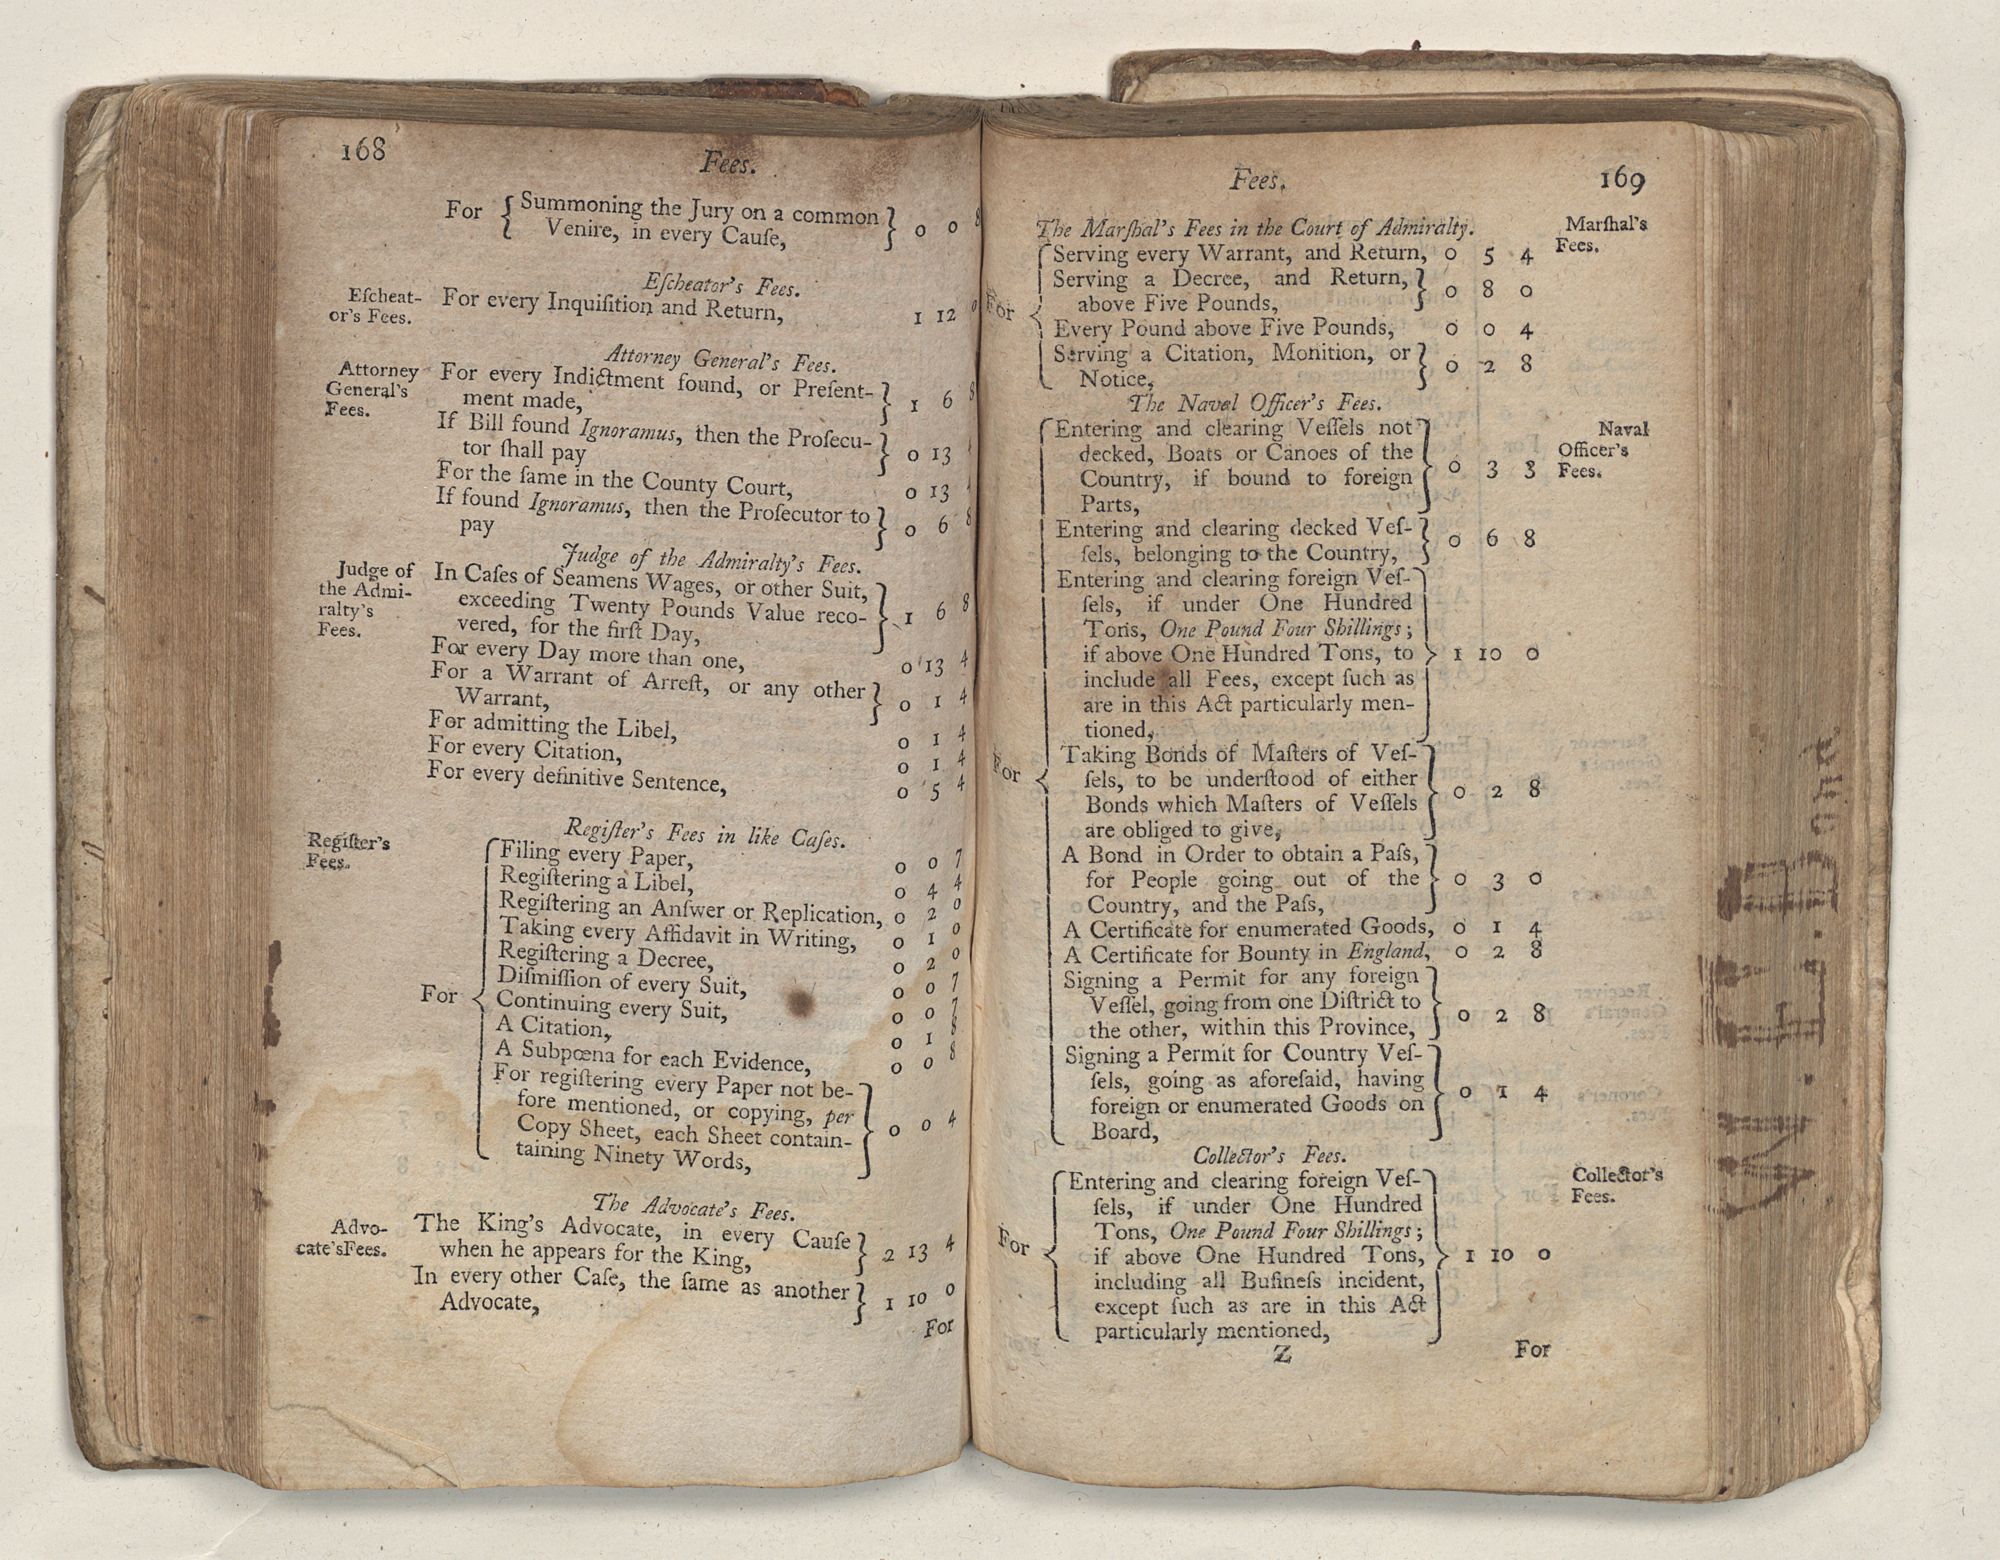 168
Fees.
For { Summoning the Jury on a common
Venire, in every Cauſe, } 0 0 8
Eſcheator's Fees.
Eſcheat-
or's Fees.
For every Inquiſition and Return, 1 12 0
Attorney General's Fees.
Attorney
General's
Fees.
For every Indictment found, or Preſent-
ment made, } 1 6 8
If Bill found Ignoramus, then the Proſecu-
tor ſhall pay } 0 13
For the ſame in the County Court, 0 13
If found Ignoramus, then the Proſecutor to
pay } 0 6 8
Judge of the Admiralty's Fees.
Judge of
the Admi-
ralty's
Fees.
In Caſes of Seamens Wages, or other Suit,
exceeding Twenty Pounds Value reco-
vered, for the firſt Day, } 1 6 8
For every Day more than one, 0 13 4
For a Warrant of Arreſt, or any other
Warrant, } 0 1 4
For admitting the Libel, 0 1 4
For every Citation, 0 1 4
For every definitive Sentence, 0 5 4
Regiſter's Fees in like Caſes.
Regiſter's
Fees.
For {
Filing every Paper, 0 0 7
Regiſtering a Libel, 0 4 4
Regiſtering an Anſwer or Replication, 0 2 0
Taking every Affidavit in Writing, 0 1 0
Regiſtering a Decree, 0 2 0
Diſmiſſion of every Suit, 0 0 7
Continuing every Suit, 0 0 7
A Citation, 0 1 8
A Subpœna for each Evidence, 0 0 8
For regiſtering every Paper not be-
fore mentioned, or copying, per
Copy Sheet, each Sheet contain-
taining Ninety Words, } 0 0 4
The Advocate's Fees.
Advo-
cate'sFees.
The King's Advocate, in every Cauſe
when he appears for the King, } 2 13 4
In every other Caſe, the ſame as another
Advocate, } 1 10 0
For
Fees.
169
The Marſhal's Fees in the Court of Admiralty.
Marſhal's
Fees.
For {
Serving every Warrant, and Return, 0 5 4
Serving a Decree, and Return,
above Five Pounds, } 0 8 0
Every Pound above Five Pounds, 0 0 4
Serving a Citation, Monition, or
Notice, } 0 2 8
The Naval Officer's Fees.
Naval
Officer's
Fees.
For {
Entering and clearing Veſſels not
decked, Boats or Canoes of the
Country, if bound to foreign
Parts, } 0 3 3
Entering and clearing decked Veſ-
ſels, belonging to the Country, } 0 6 8
Entering and clearing foreign Veſ-
ſels, if under One Hundred
Tons, One Pound Four Shillings;
if above One Hundred Tons, to
include all Fees, except ſuch as
are in this Act particularly men-
tioned, } 1 10 0
Taking Bonds of Maſters of Veſ-
ſels, to be underſtood of either
Bonds which Maſters of Veſſels
are obliged to give, } 0 2 8
A Bond in Order to obtain a Paſs,
for People going out of the
Country, and the Paſs, } 0 3 0
A Certificate for enumerated Goods, 0 1 4
A Certificate for Bounty in England, 0 2 8
Signing a Permit for any foreign
Veſſel, going from one Diſtrict to
the other, within this Province, } 0 2 8
Signing a Permit for Country Veſ-
ſels, going as aforeſaid, having
foreign or enumerated Goods on
Board, } 0 1 4
Collector's Fees.
Collector's
Fees.
For {
Entering and clearing foreign Veſ-
ſels, if under One Hundred
Tons, One Pound Four Shillings;
if above One Hundred Tons,
including all Buſineſs incident,
except ſuch as are in this Act
particularly mentioned, } 1 10 0
Z
For